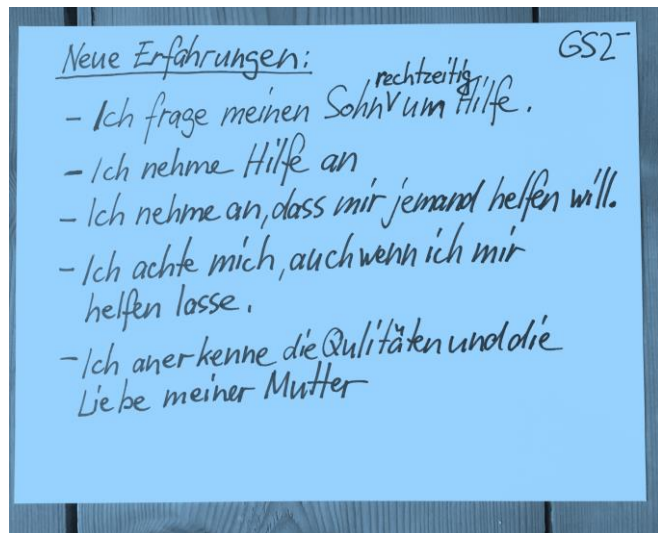 Neue Erfahrungen: GS2-
rechtzeitig
- Ich frage meinen Sohn V um Hilfe.
- Ich nehme Hilfe an
- Ich nehme an, dass mir jemand helfen will.
- Ich achte mich, auch wenn ich mir
helfen lasse.
- Ich anerkenne die Qulitäten und die
Liebe meiner Mutter